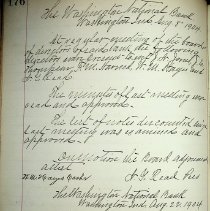 176
The Washington National Bank
Washington Ind Aug 8 1904
At regular meeting of the board
of directors of said bank the following
directors were present
and
J G Read
The minutes of last meeting was
read and approved.
The list of notes discounted since
last meeting was examined and
approved.
On motion the Board adjourned
attest
J G Read Pres
The Washington National Bank
Washington Ind Aug 22 1904